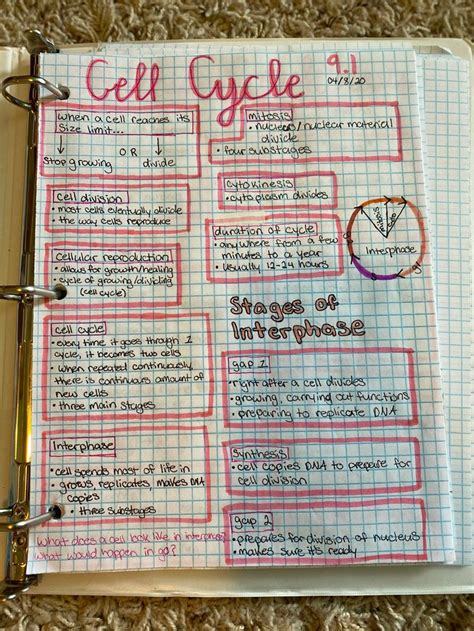 Cell Cycle
9.1
04/8/20
when a cell reaches its
size limit...
OR
stop growing divide
cell division
• most cells eventually divide
• the way cells reproduce
cellular reproduction
• allows for growth/healing
• cycle of growing/dividing
(cell cycle)
cell cycle
• every time it goes through 1
cycle, it becomes two cells
• when repeated continuously,
there is continuous amount of
new cells
• three main stages
Interphase
• cell spends most of life in
• grows, replicates, makes DNA
copies
• three substages
what does a cell look like in interphase?
what would happen in g0?
mitosis
• nucleus/nuclear material
divide
• four substages
cytokinesis
• cytoplasm divides
duration of cycle
• anywhere from a few
minutes to a year
• usually 12-24 hours
Interphase
Stages of
Interphase
gap 1
• right after a cell divides
• growing, carrying out functions
• preparing to replicate DNA
synthesis
• cell copies DNA to prepare for
cell division
gap 2
• prepares for division of nucleus
• makes sure it's ready